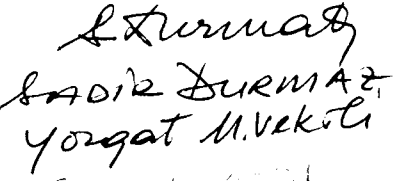 S Durmaz
SADIR DURMAZ
Yozgat M.Vekili